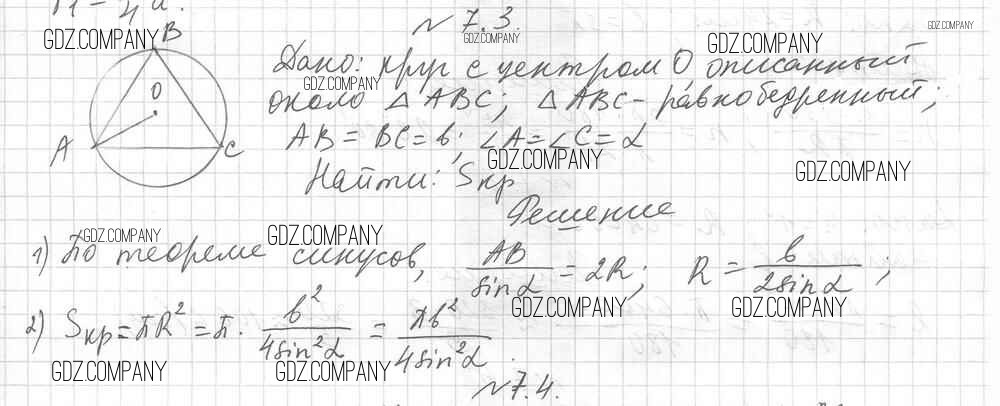 № 7.3.
Дано: круг с центром O, описанный
около △ABC; △ABC - равнобедренный;
AB = BC = b; ∠A = ∠C = α
Найти: Sкр
Решение
1) По теореме синусов, AB/sinα = 2R; R = b/2sinα;
2) Sкр = πR² = π · b²/4sin²α = πb²/4sin²α.
№ 7.4.
B
O
A
C
GDZ.COMPANY
GDZ.COMPANY
GDZ.COMPANY
GDZ.COMPANY
GDZ.COMPANY
GDZ.COMPANY
GDZ.COMPANY
GDZ.COMPANY
GDZ.COMPANY
GDZ.COMPANY
GDZ.COMPANY
GDZ.COMPANY
GDZ.COMPANY